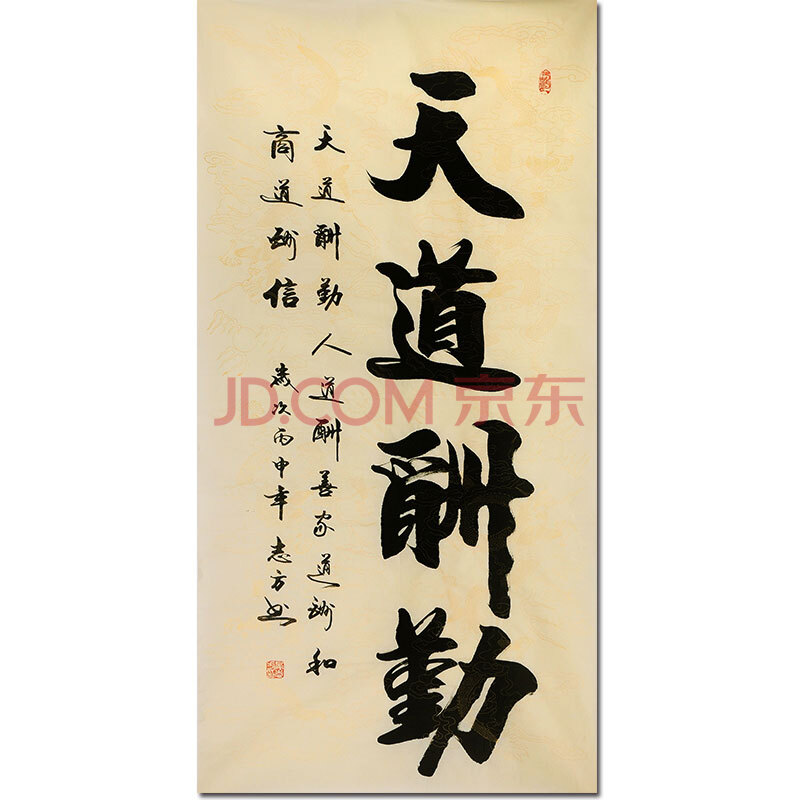 天道酬勤
天道酬勤人道酬善家道酬和
商道酬信 歲次丙申年志方书
JD.COM 京东